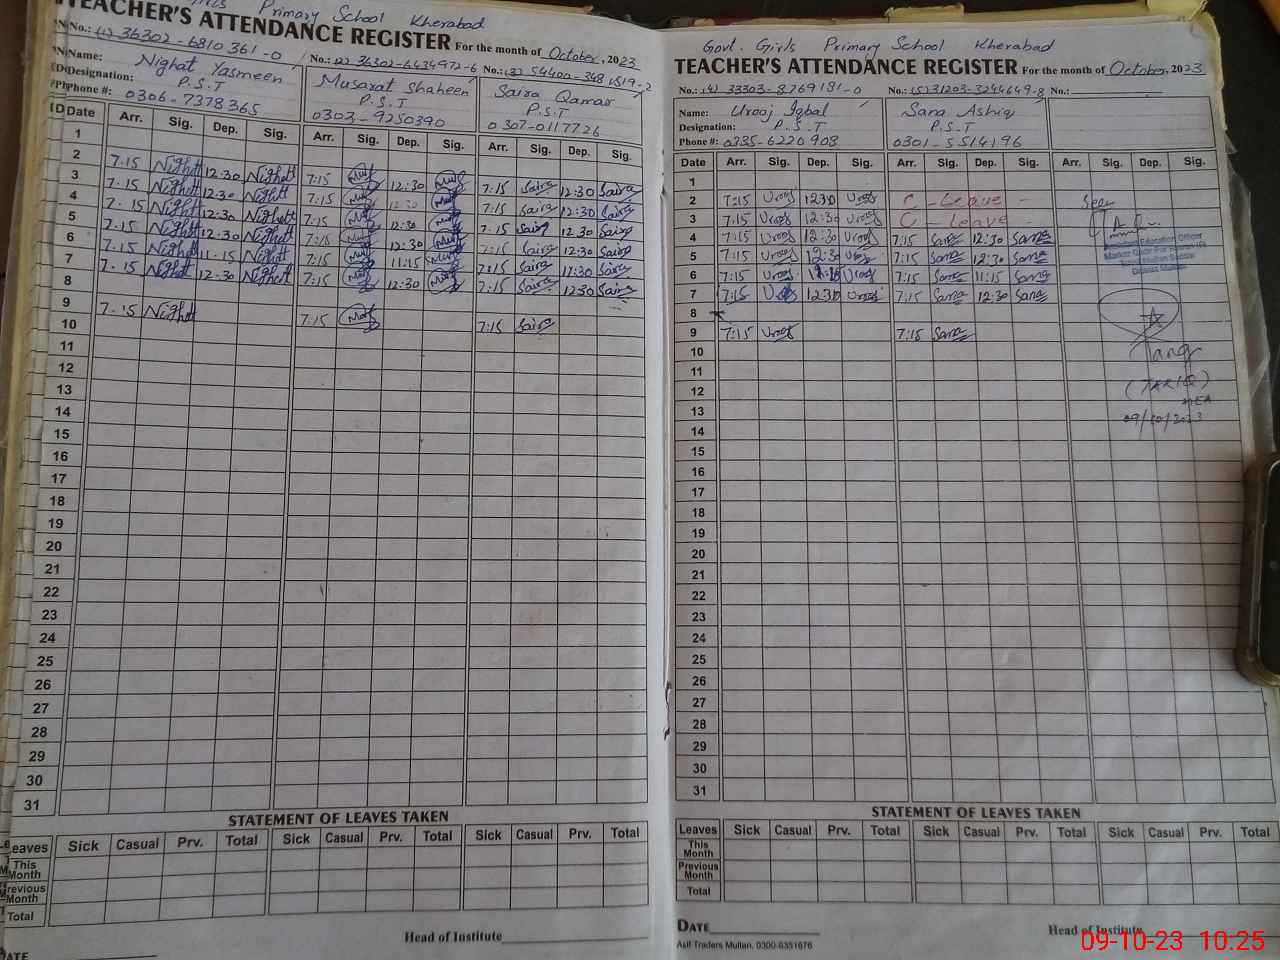 Girls Primary School Kherabad
TEACHER'S ATTENDANCE REGISTER For the month of October, 2023
No.: (1) 36302-6810361-0 No.: (2) 36302-6434972-6 No.: (3) 54400-3481519-2
Name: Nighat Yasmeen Musarat Shaheen Saira Qamar
Designation: P.S.T P.S.T P.S.T
Phone #: 0306-7378365 0303-9250390 0307-0117726
Date Arr. Sig. Dep. Sig. Arr. Sig. Dep. Sig. Arr. Sig. Dep. Sig.
1
2 7.15 Nighat 12:30 Nighat 7:15 12:30 7:15 Saira 12:30 Saira
3 7.15 Nighat 12:30 Nighat 7:15 12:30 7:15 Saira 12:30 Saira
4 7.15 Nighat 12:30 Nighat 7:15 12:30 7:15 Saira 12:30 Saira
5 7.15 Nighat 12:30 Nighat 7:15 12:30 7:15 Saira 12:30 Saira
6 7.15 Nighat 11.15 Nighat 7:15 11:15 7:15 Saira Saira
7 7.15 Nighat 12:30 Nighat 7:15 12:30 7:15 Saira 12:30 Saira
8
9 7.15 Nighat 7:15 7:15 Saira
10
11
12
13
14
15
16
17
18
19
20
21
22
23
24
25
26
27
28
29
30
31
STATEMENT OF LEAVES TAKEN
Leaves Sick Casual Prv. Total Sick Casual Prv. Total Sick Casual Prv. Total
This Month
Previous Month
Total
Head of Institute
DATE
Govt. Girls Primary School Kherabad
TEACHER'S ATTENDANCE REGISTER For the month of October, 2023
No.: (4) 33303-8769181-0 No.: (5) 31203-3244649-8 No.:
Name: Urooj Iqbal Sana Ashiq
Designation: P.S.T P.S.T
Phone #: 0335-6220903 0301-5514196
Date Arr. Sig. Dep. Sig. Arr. Sig. Dep. Sig. Arr. Sig. Dep. Sig.
1
2 7:15 Urooj 12:30 Urooj C - Leave - Seen
3 7:15 Urooj 12:30 Urooj C - Leave -
4 7:15 Urooj 12:30 Urooj 7:15 Sana 12:30 Sana
5 7:15 Urooj 12:30 Urooj 7:15 Sana 12:30 Sana
6 7:15 Urooj Urooj 7:15 Sana 11:15 Sana
7 7:15 Urooj 12:30 Urooj 7:15 Sana 12:30 Sana
8
9 7:15 Urooj 7:15 Sana
10
11
12 (TARIQ)
13
14 09/10/2023
15
16
17
18
19
20
21
22
23
24
25
26
27
28
29
30
31
STATEMENT OF LEAVES TAKEN
Leaves Sick Casual Prv. Total Sick Casual Prv. Total Sick Casual Prv. Total
This Month
Previous Month
Total
DATE
Head of Institute
Asif Traders Multan. 0300-6351676
09-10-23 10.25